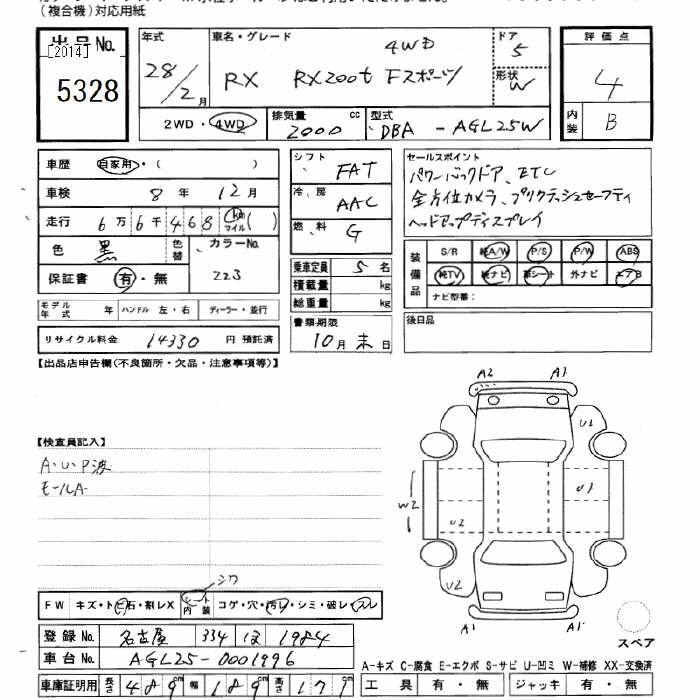 （複合機）対応用紙
出品No.
[2014]
5328
年式
28/2月
車名・グレード
4WD
RX RX200t Fスポーツ
ドア
5
形状
W
評価点
4
内装
B
2WD・4WD
排気量
2000 cc
型式
DBA - AGL25W
車歴 自家用・（ ）
車検 8年 12月
走行 6万6千468 km マイル( )
色 黒 色替 カラーNo. 223
保証書 有・無
モデル年式 年 ハンドル 左・右 ディーラー・並行
リサイクル料金 14330 円 預託済
シフト FAT
冷房 AAC
燃料 G
乗車定員 5名
積載量 kg
総重量 kg
書類期限
10月末日
セールスポイント
パワーバックドア、ETC
全方位カメラ、プリクラッシュセーフティ
ヘッドアップディスプレイ
装備品
S/R 純A/W P/S P/W ABS
純TV 純ナビ 革シート 外ナビ エアB
ナビ型番：
後日品
【出品店申告欄(不良箇所・欠品・注意事項等)】
【検査員記入】
A・U・P波
モールA
A2 A3
U1
U3
W2
U2
U2
A1 A1
スペア
シワ
FW キズ・トビ石・割レX シート内装 コゲ・穴・汚レ・シミ・破レ・スレ
登録No. 名古屋 334 ほ 1984
車台No. AGL25-0001996
車庫証明用 長さ 489cm 幅 189cm 高さ 171cm
A-キズ C-腐食 E-エクボ S-サビ U-凹ミ W-補修 XX-交換済
工具 有・無 ジャッキ 有・無